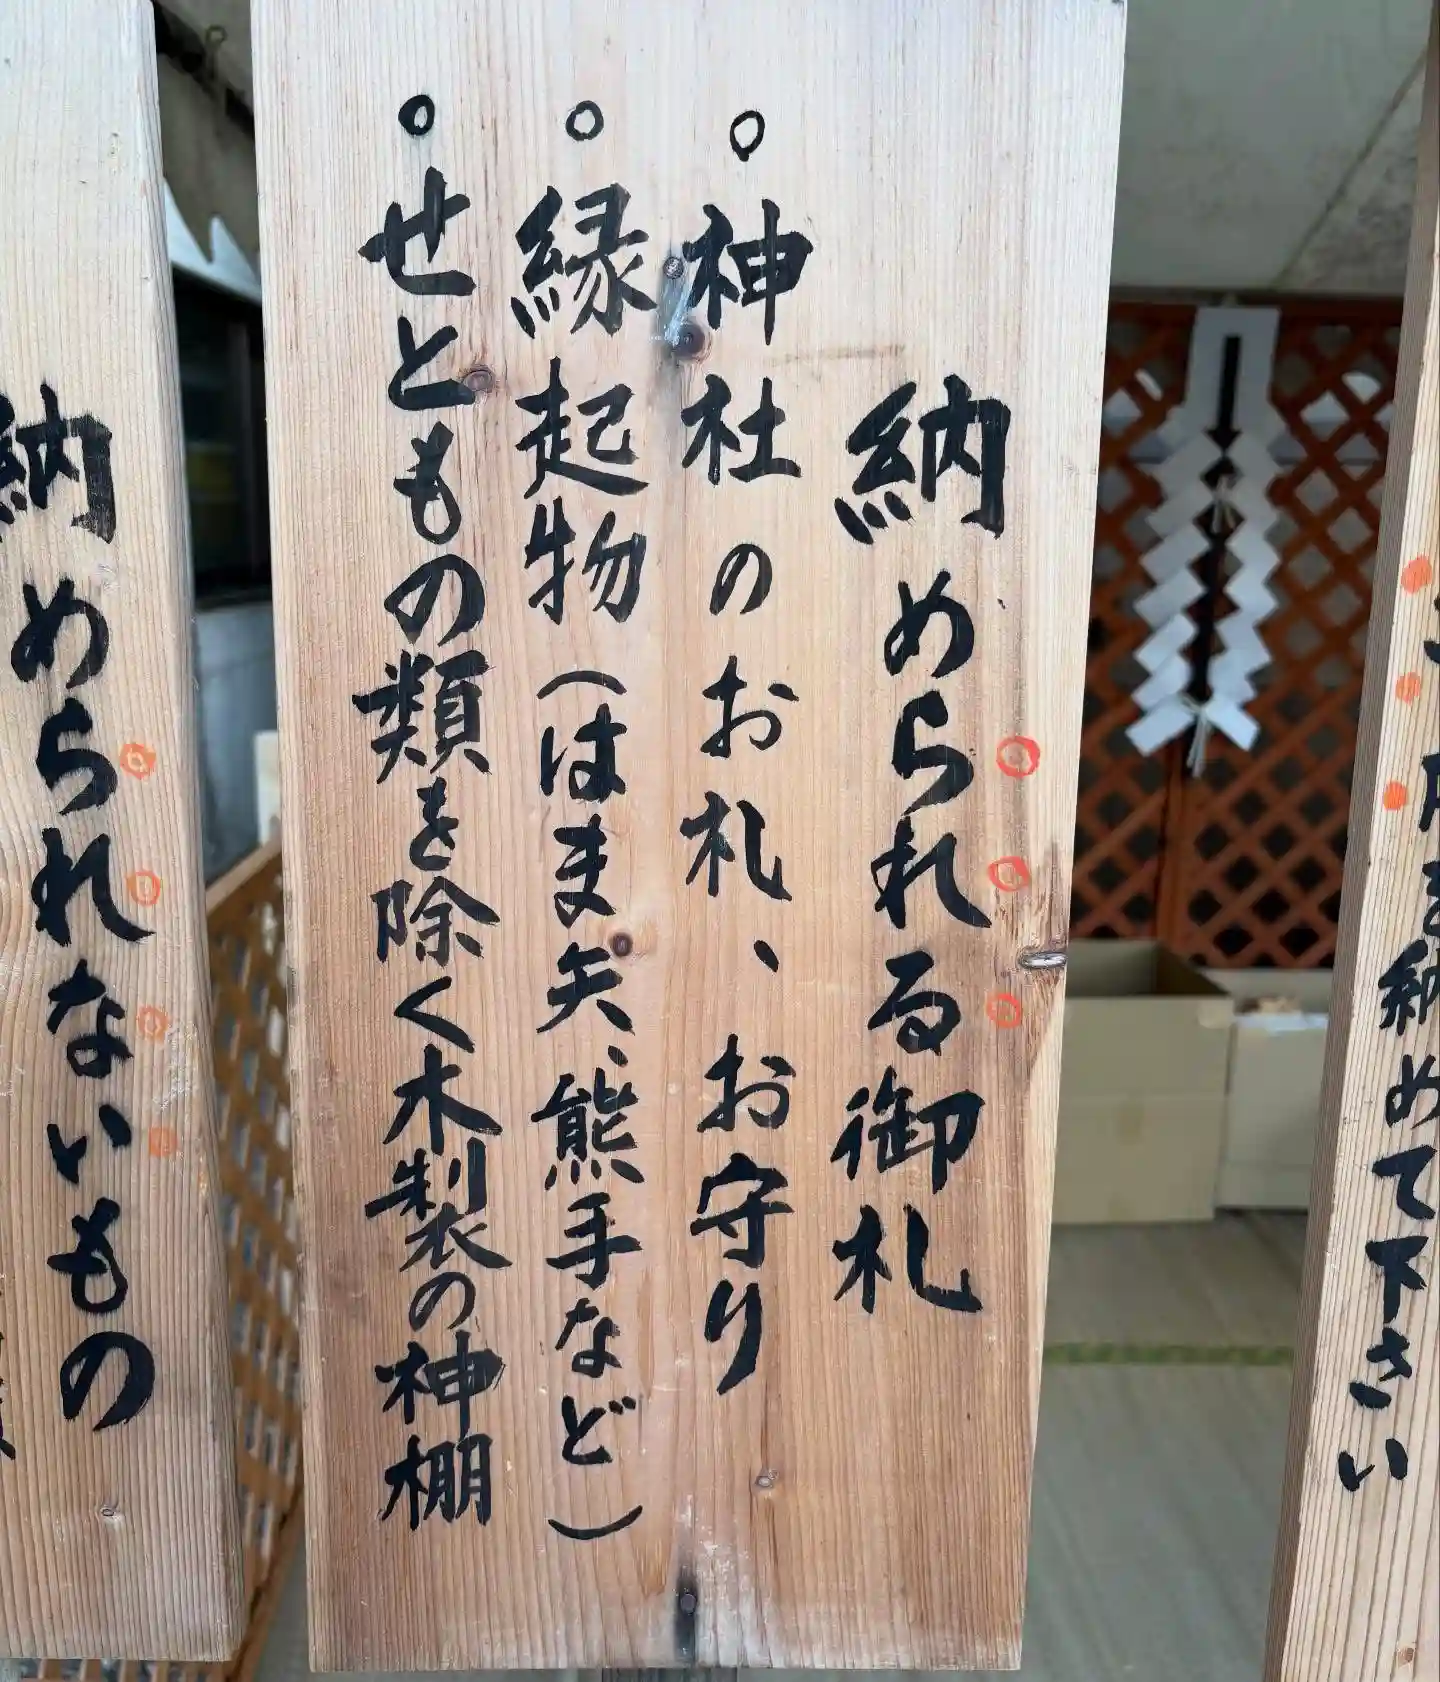 納めて下さい
納められる御札
○神社のお札、お守り
○縁起物(はま矢、熊手など)
○せとものの類を除く木製の神棚
納められないもの